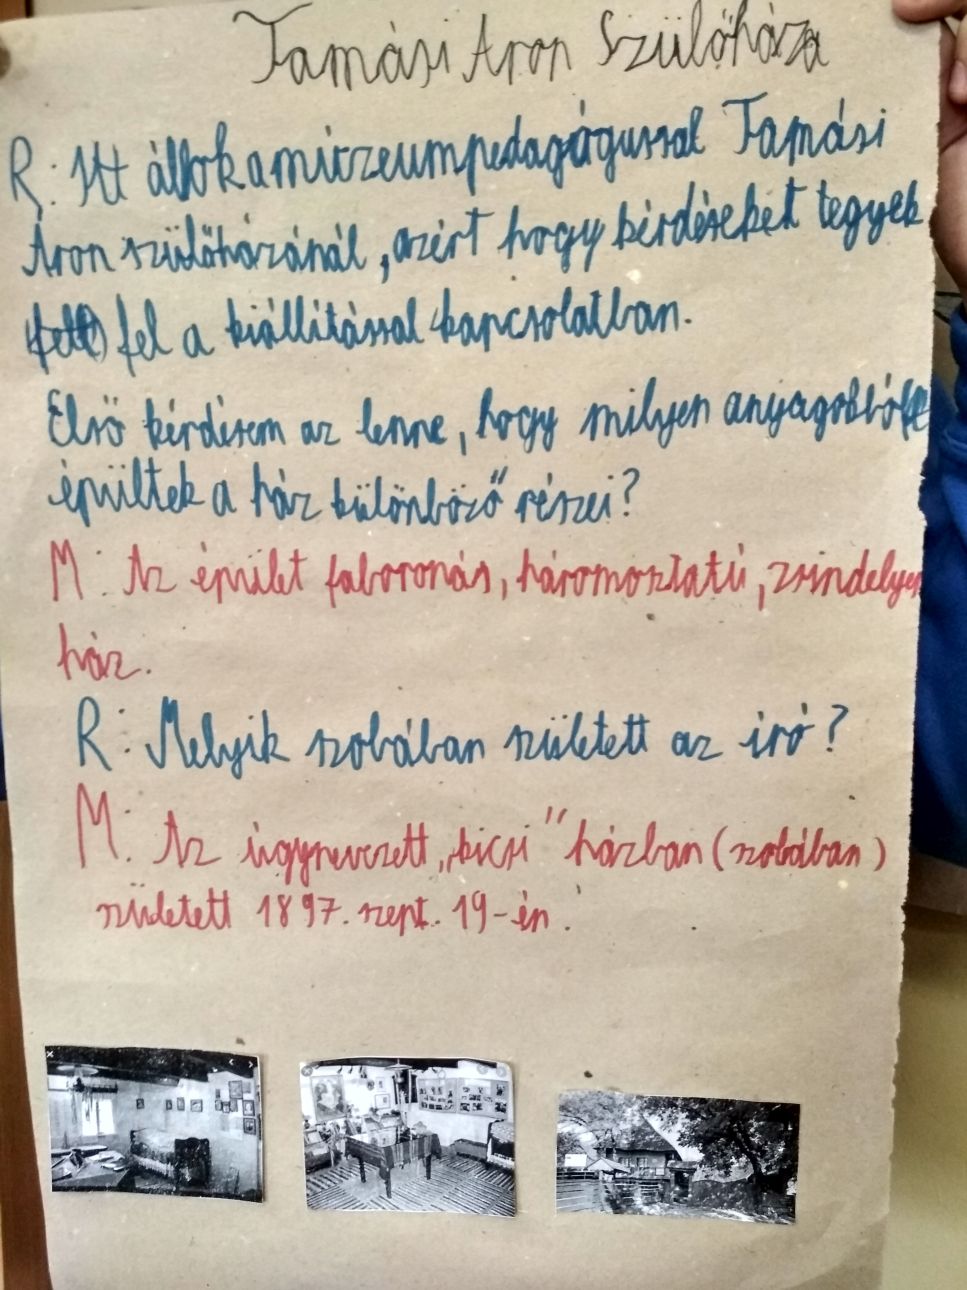 Tamási Áron Szülőháza
R: Itt állok a múzeumpedagógussal Tamási
Áron szülőházánál, azért hogy kérdéseket tegyek
(fett) fel a kiállítással kapcsolatban.
Első kérdésem az lenne, hogy milyen anyagokból
épültek a ház különböző részei?
M: Az épület faboronás, háromosztatú, zsindelyes
ház.
R: Melyik szobában született az író?
M: Az úgynevezett „kicsi" házban (szobában)
született 1897. szept. 19-én.